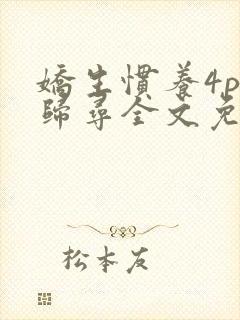 嬌生慣養4p
歸尋全文免
松本友